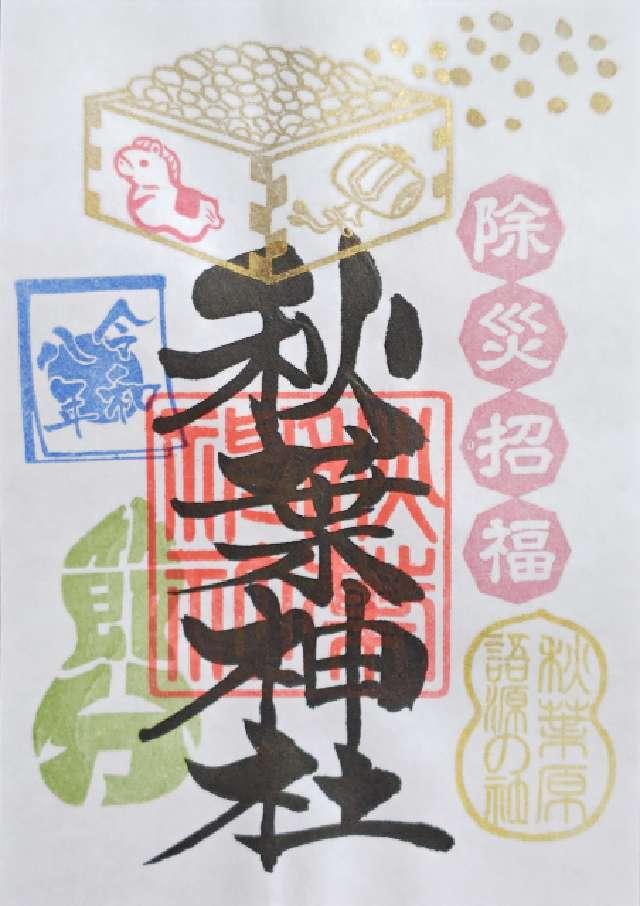 除災招福
秋葉原
語源の社
秋葉神社
令和
八年
節分